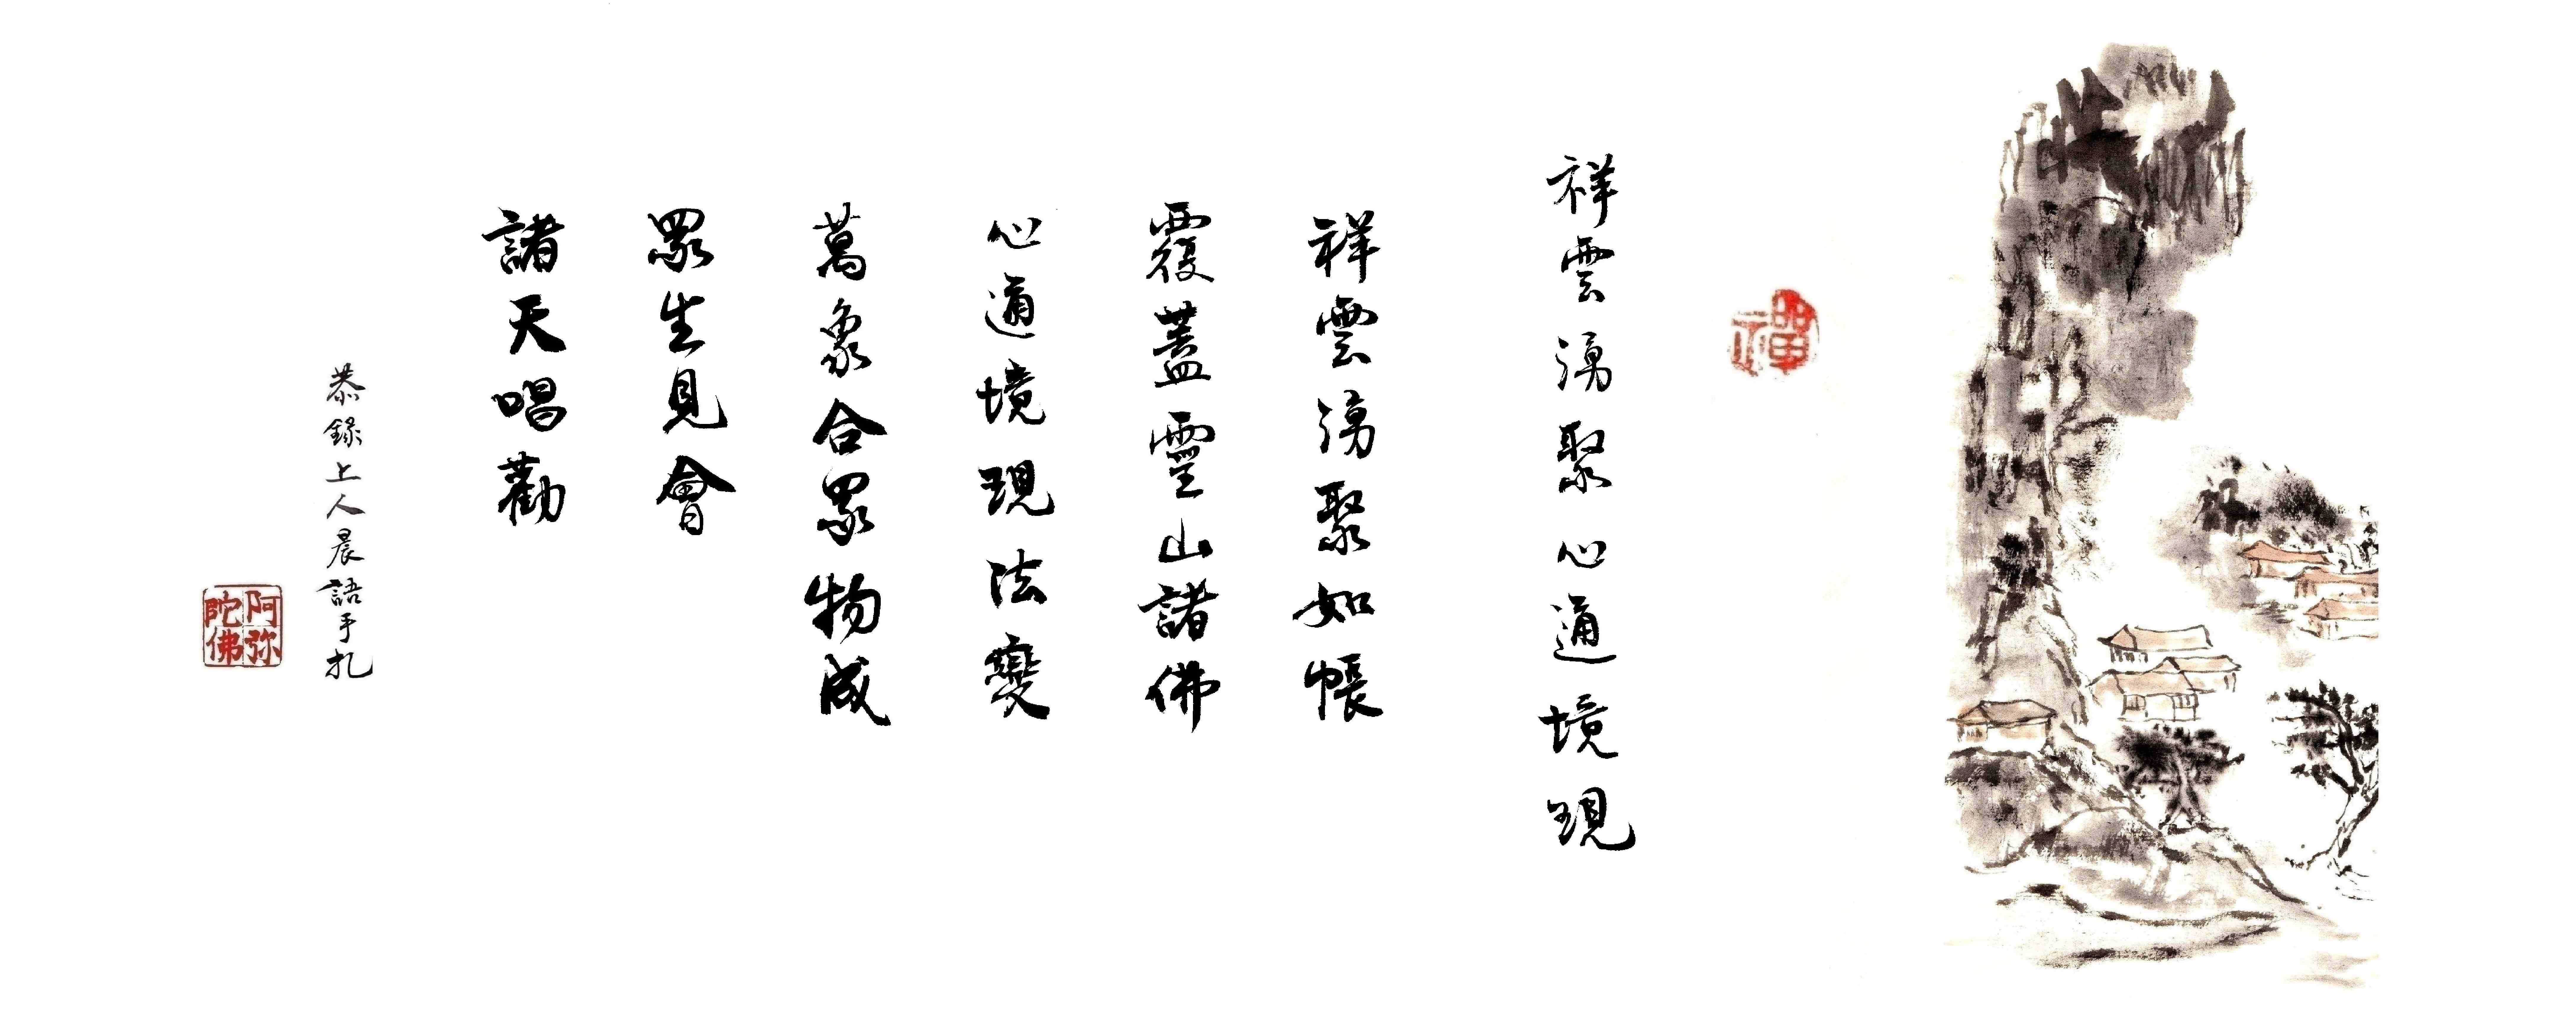 禪
祥雲湧聚心通境現
祥雲湧聚如帳
覆蓋靈山諸佛
心通境現法變
萬象合眾物成
眾生見會
諸天唱勸
恭錄上人晨語手札
阿弥
陀佛